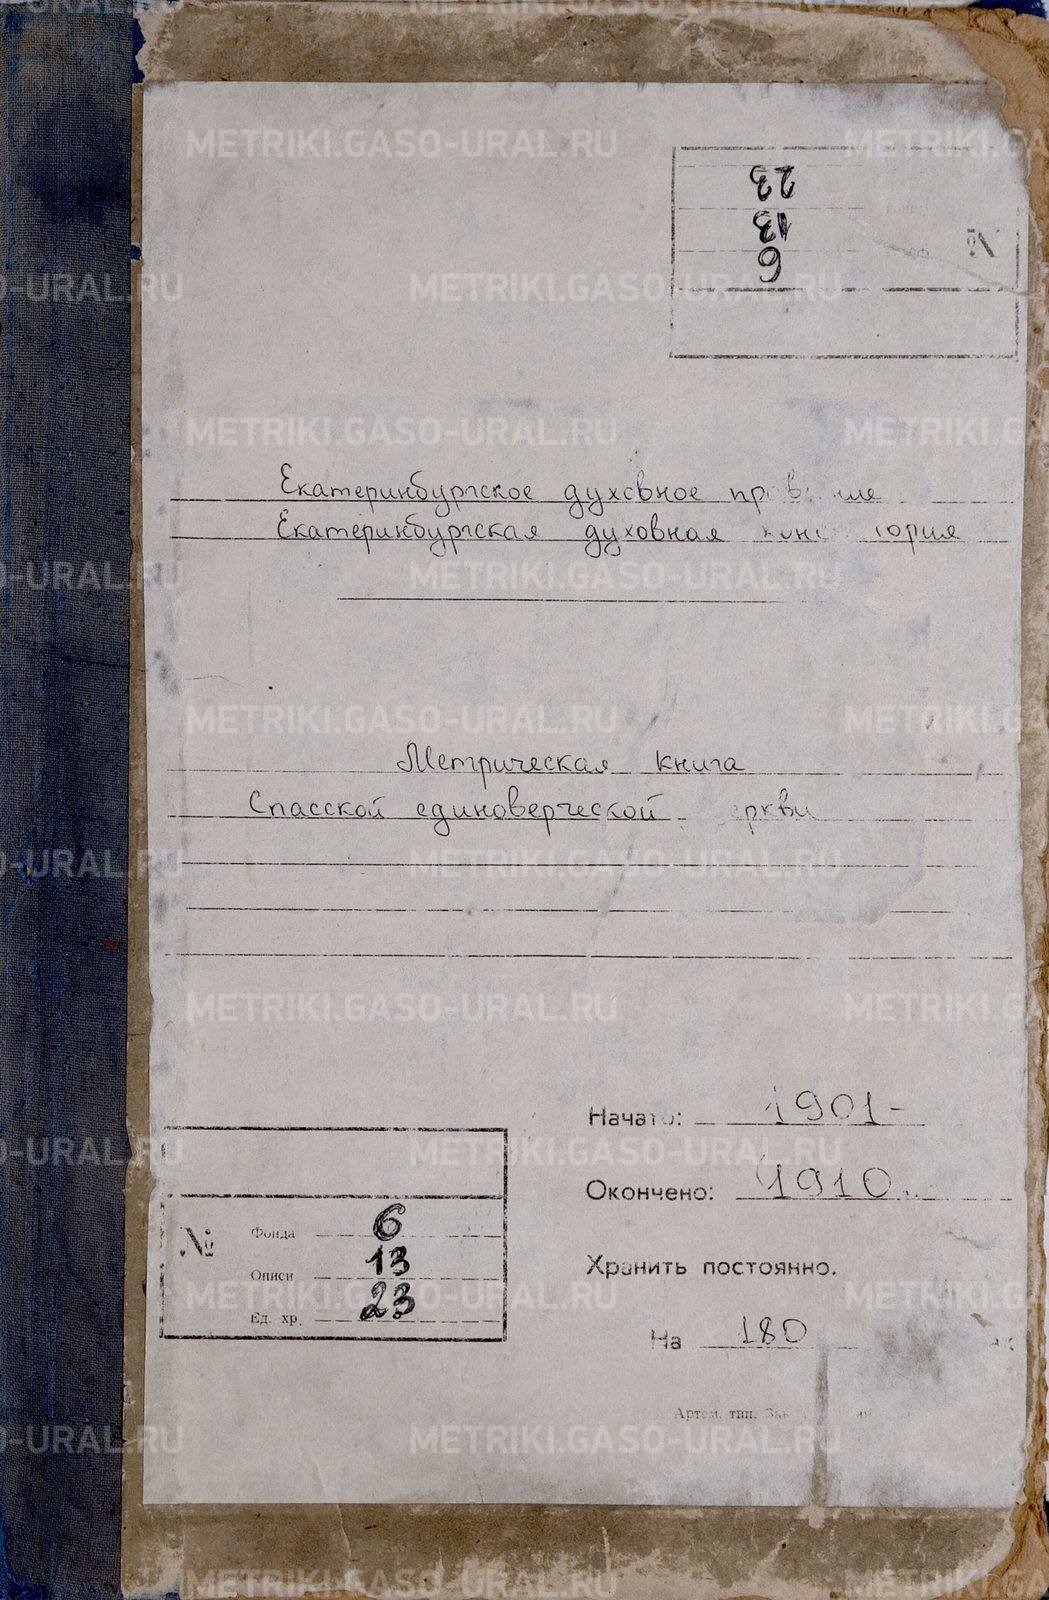 23
13
6
№
Екатеринбургское духовное
Екатеринбургская духовная
Метрическая книга
Спасской единоверческой
Начато: 1901-
Окончено: 1910
№
Фонда 6
Описи 13
Ед. хр. 23
Хранить постоянно.
На 180
Артем. тип.
METRIKI.GASO-URAL.RU